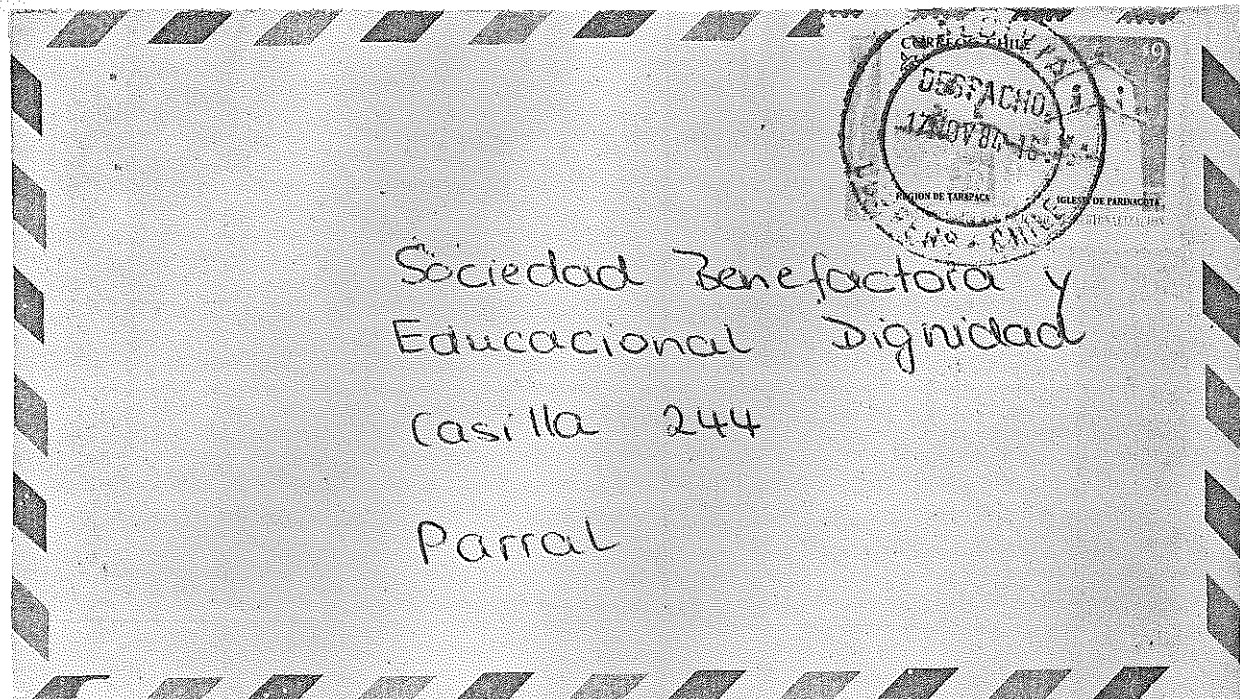 CORREOS CHILE
DESPACHO
17 NOV 84
REGION DE TARAPACA
IGLESIA DE PARINACOTA
CHILE
Sociedad Benefactora y
Educacional Dignidad
Casilla 244
Parral